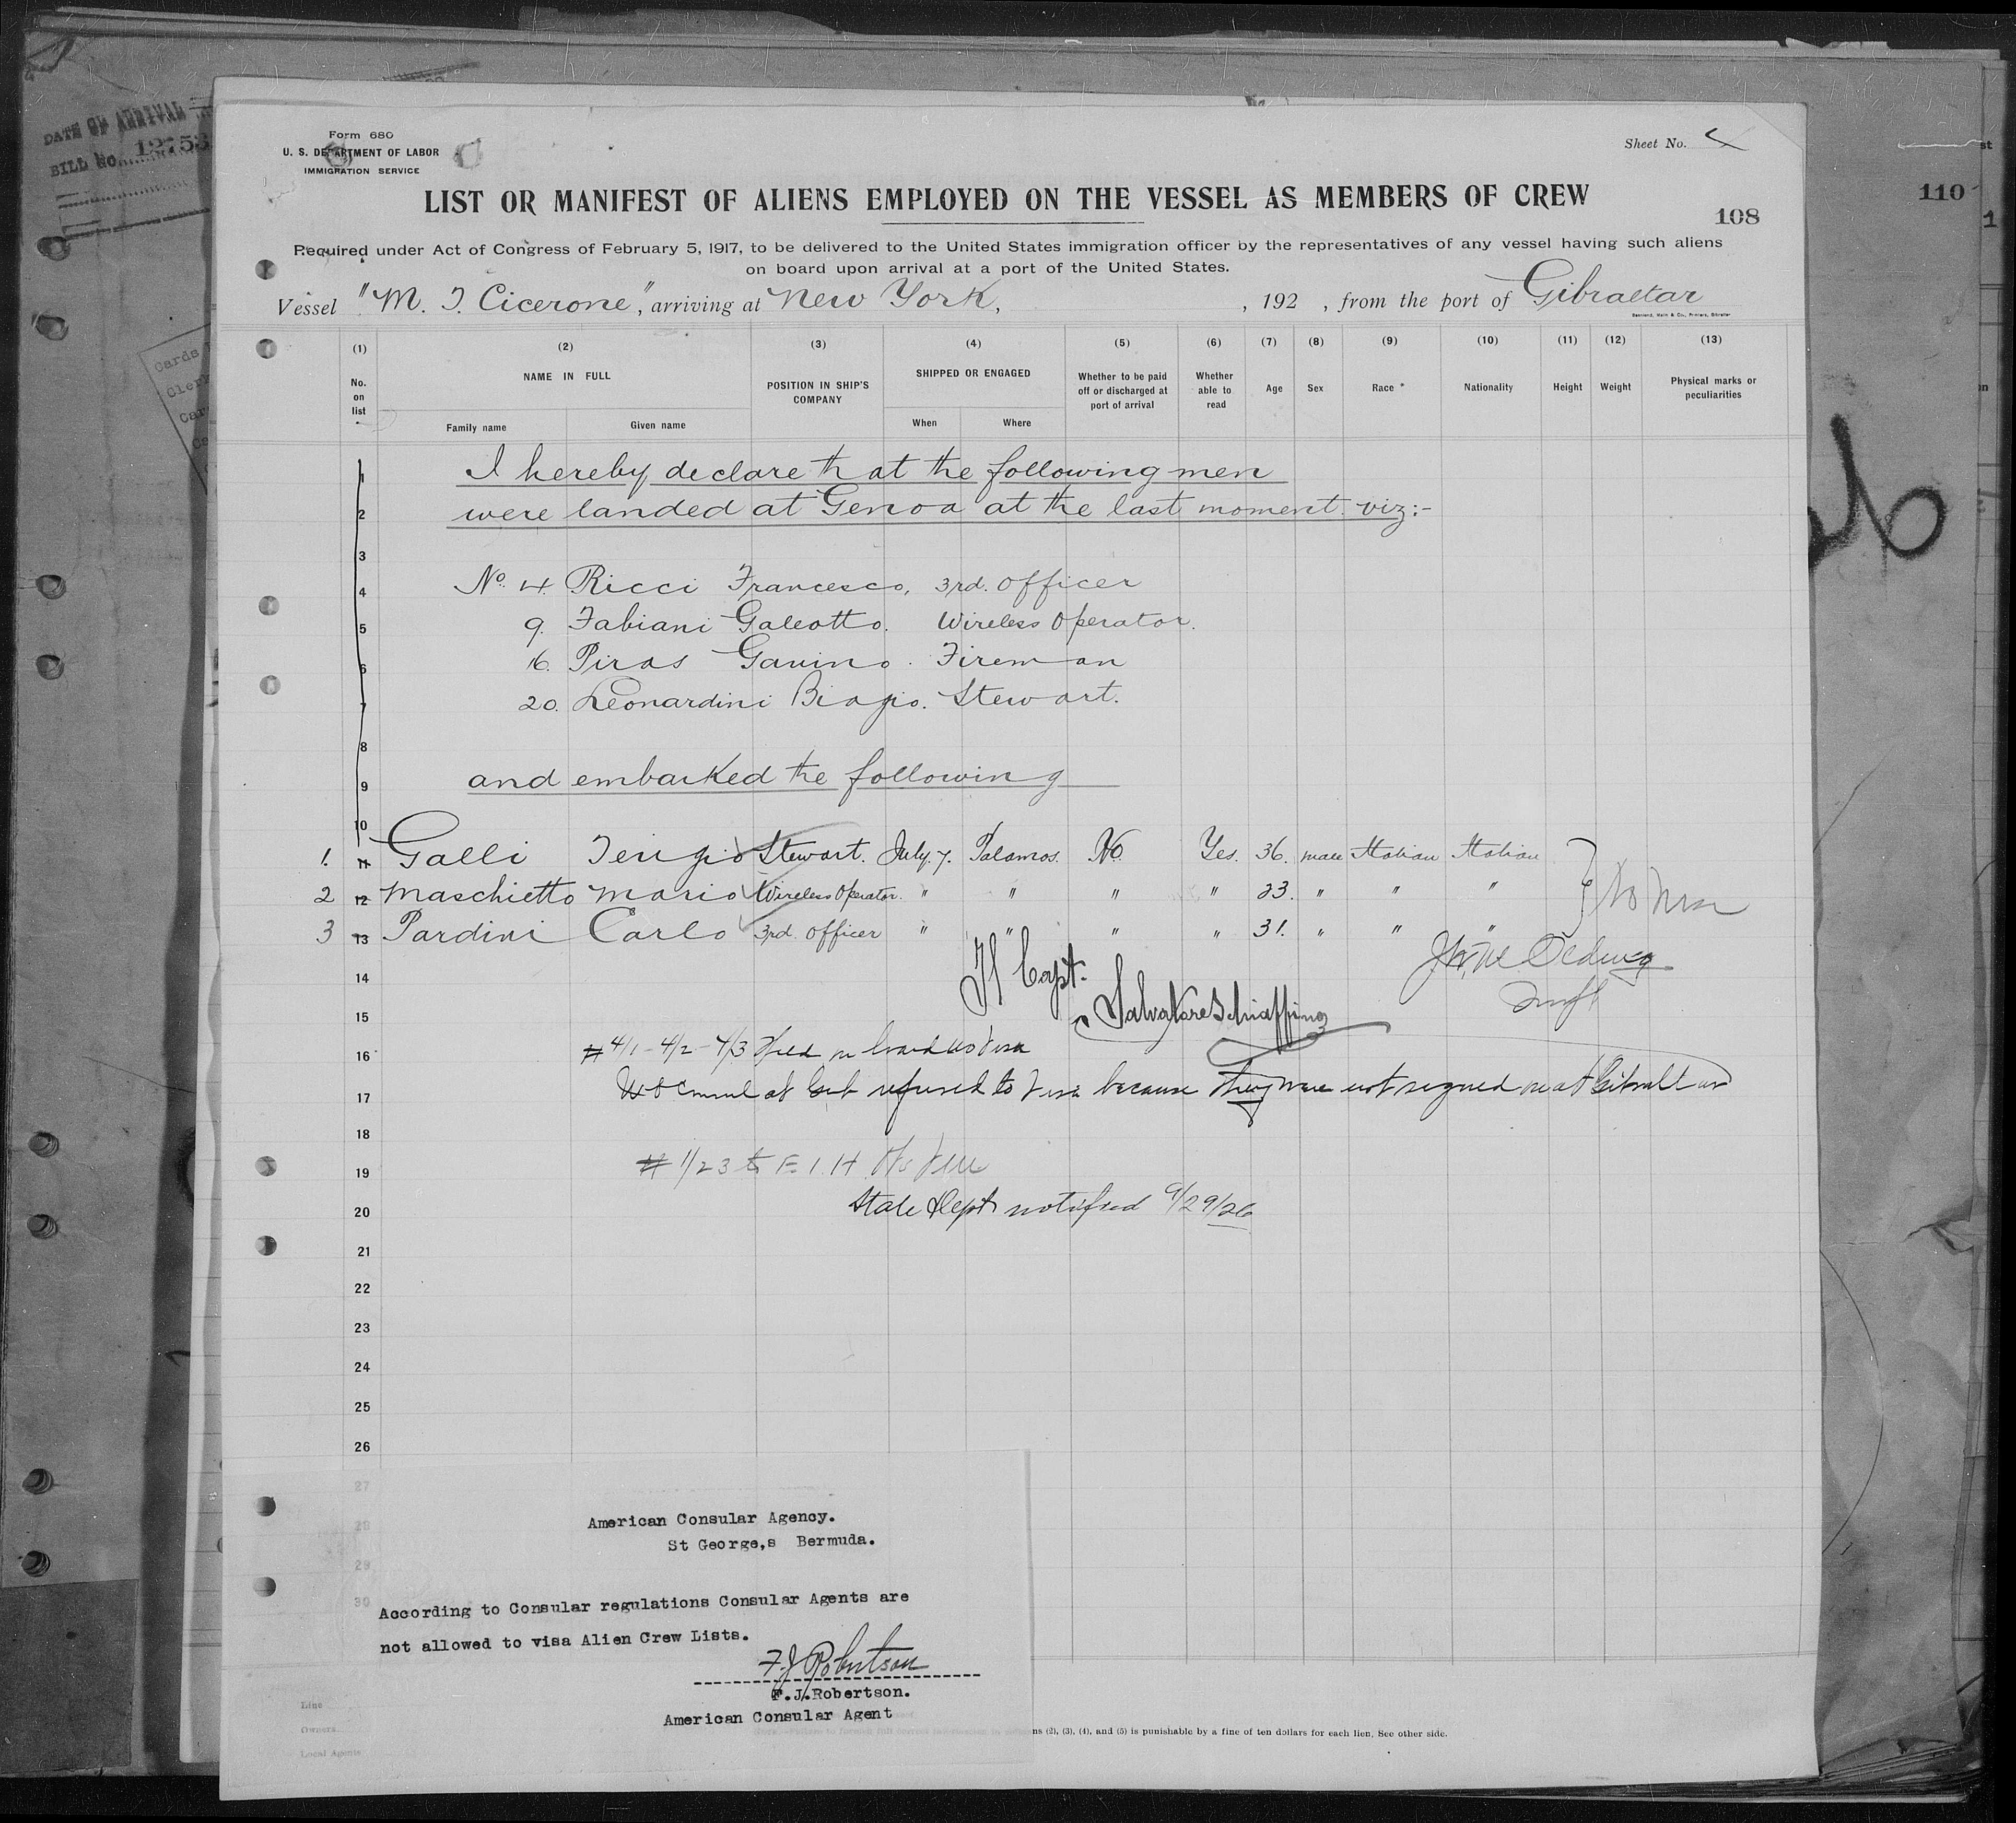 DATE OF ARRIVAL
BILL No. 12753
Form 680
U. S. DEPARTMENT OF LABOR
IMMIGRATION SERVICE
Sheet No. 4
LIST OR MANIFEST OF ALIENS EMPLOYED ON THE VESSEL AS MEMBERS OF CREW
108
110
Required under Act of Congress of February 5, 1917, to be delivered to the United States immigration officer by the representatives of any vessel having such aliens
on board upon arrival at a port of the United States.
Vessel "M. T. Cicerone", arriving at New York, , 192 , from the port of Gibraltar
(1) (2) (3) (4) (5) (6) (7) (8) (9) (10) (11) (12) (13)
No. on list NAME IN FULL POSITION IN SHIP'S COMPANY SHIPPED OR ENGAGED Whether to be paid off or discharged at port of arrival Whether able to read Age Sex Race * Nationality Height Weight Physical marks or peculiarities
Family name Given name When Where
1 I hereby declare that the following men
2 were landed at Genoa at the last moment viz:-
3
4 No. 4. Ricci Francesco, 3rd. Officer
5 9. Fabiani Galeotto. Wireless Operator.
6 16. Piras Gavino. Fireman
7 20. Leonardini Biagio. Stewart.
8
9 and embarked the following
10
1. 11 Galli Terigio Stewart. July. 7. Palamos. No. Yes. 36. male Italian Italian
2 12 Maschietto Mario Wireless Operator. " " " " 23. " " "
3 13 Pardini Carlo 3rd. Officer " " " " 31. " " "
14 Il Capt.
15 Salvatore Schiaffino
16 # 4/1 - 4/2 - 4/3 Held on board no visa
17 US Consul at Gib refused to visa because they were not signed on at Gibraltar
18
19 # 1/23 to E.I.
20 State Dept notified 9/29/26
21
22
23
24
25
26
27
28
29
30
American Consular Agency.
St George,s Bermuda.
According to Consular regulations Consular Agents are
not allowed to visa Alien Crew Lists.
F J Robertson
F.J.Robertson.
American Consular Agent
Line
Owners
Local Agents
(2), (3), (4), and (5) is punishable by a fine of ten dollars for each lien, See other side.